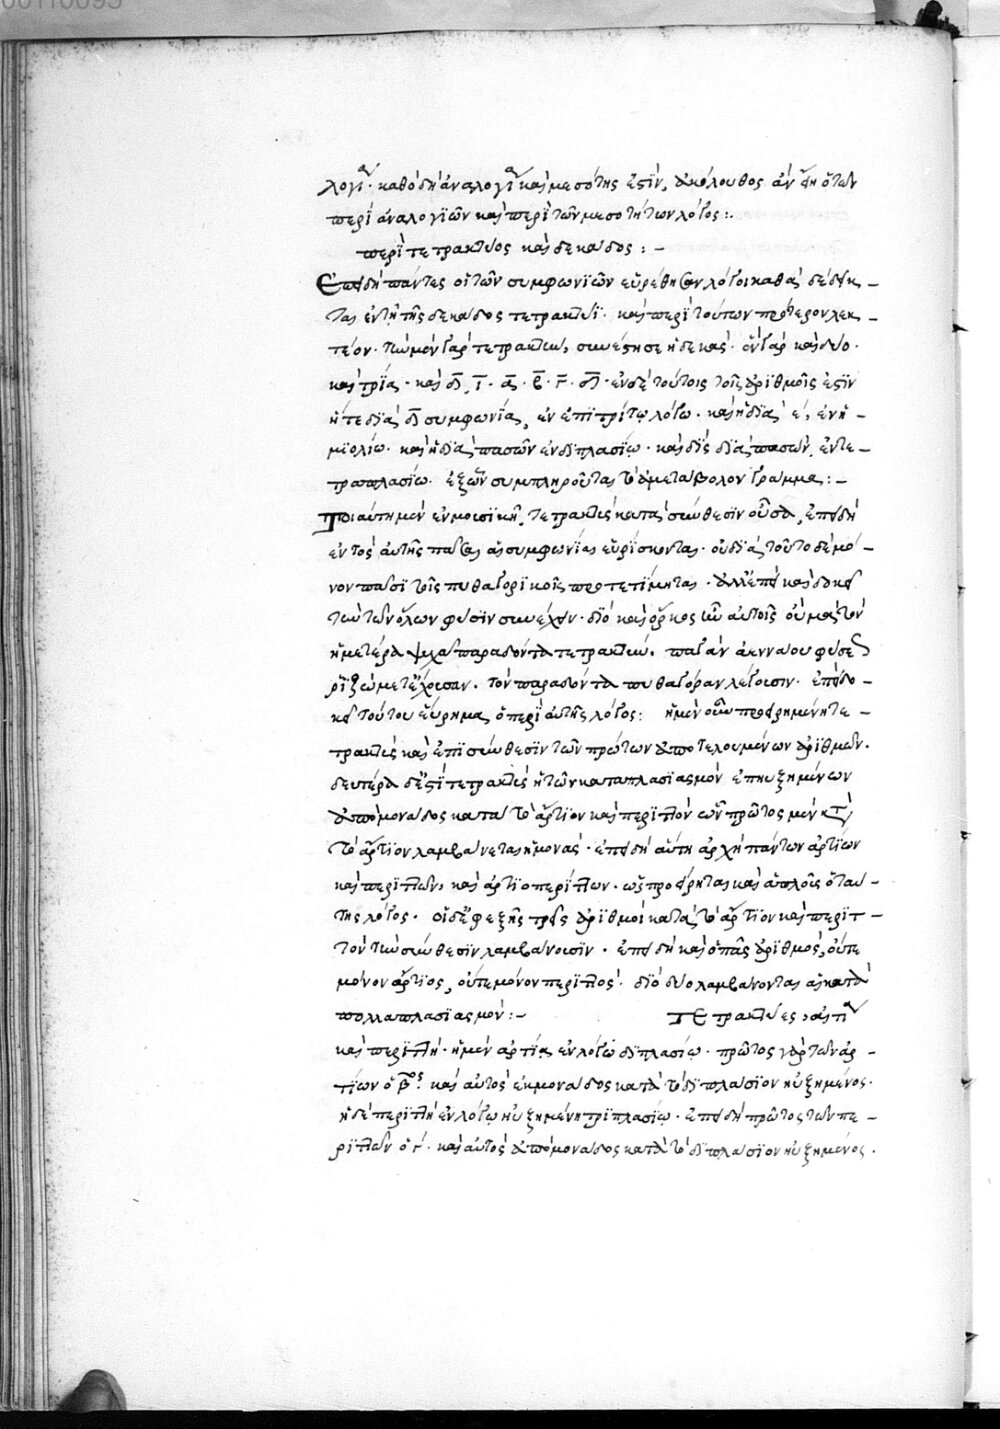 λογία· καθὸ δὴ ἀναλογία καὶ μεσότης ἐστὶν, ἀκόλουθος ἂν εἴη ὅ τῶν
περὶ ἀναλογϊῶν καὶ περὶ τῶν μεσοτήτων λόγος:.
περὶ τετρακτύος καὶ δεκάδος:-
Ἐπειδὴ πάντες οἱ τῶν συμφωνϊῶν εὑρέθησαν λόγοι καθὰ δέδεικ-
ται ἐν τῇ τῆς δεκάδος τετρακτύϊ· καὶ περὶ τούτων πρότερον λεκ-
τέον· τὴν μὲν γὰρ τετρακτὺν, συνέστησε ἡ δεκάς· ἓν γὰρ καὶ δύο·
καὶ τρία· καὶ δ̄, ῑ· ᾱ· β̄· γ̄· δ̄· ἐν δὲ τούτοις τοῖς ἀρϊθμοῖς ἐστὶν
ἥ τε δϊὰ δ̄ συμφωνία, ἐν ἐπϊτρίτῳ λόγω· καὶ ἡ δϊὰ ε, ἐν ἡ-
μϊολίω· καὶ ἡ δϊὰ πασῶν ἐν δϊπλασίῳ· καὶ δὶς δϊὰ πασῶν, ἐν τε-
τραπλασίω· ἐξ ὧν συμπληροῦται τὸ ἀμετάβολον γράμμα:-
Τοιαύτη μὲν ἐν μουσϊκῆ, τετρακτὺς κατὰ σύνθεσϊν οὖσα, ἐπειδὴ
ἐντὸς αὐτῆς πᾶσαι αἱ συμφωνίαι εὑρίσκονται· οὐ δϊὰ τοῦτο δὲ μό-
νον πᾶσϊ τοῖς πυθαγορϊκοῖς προτετίμηται· ἀλλ' ἐπεὶ καὶ δοκεῖ
τὴν τῶν ὅλων φύσϊν συνέχειν· δϊὸ καὶ ὅρκος ἦν αὐτοῖς οὐ μὰ τὸν
ἡμετέρα ψυχᾶ παραδόντα τετρακτύν. παγὰν ἀεννάου φύσεως
ῥϊζώματ' ἔχουσαν. τὸν παραδόντα πυθαγόραν λέγουσιν· ἐπεὶ δο-
κεῖ τούτου εὕρημα, ὁ περὶ αὐτῆς λόγος: ἡ μὲν οὖν προειρημένη τε-
τρακτὺς καὶ ἐπὶ σύνθεσϊν τῶν πρώτων ἀποτελουμένων ἀρϊθμῶν.
δευτέρα δ' ἐστὶ τετρακτὺς ἡ τῶν κατα πλασϊασμὸν ἐπηυξημένων
ἀπὸ μονάδος κατὰ τὸ ἄρτϊον καὶ περϊττὸν ὧν πρῶτος μὲν κατὰ
τὸ ἄρτϊον λαμβάνεται ἡ μονάς· ἐπειδὴ αὕτη ἀρχὴ πάντων ἀρτίων
καὶ περϊττῶν, καὶ ἀρτϊοπερίττων. ὡς προείρηται καὶ ἁπλοῦς ὁ ταύ-
της λόγος· οἱ δ' ἐφεξῆς τρεῖς ἀρϊθμοὶ κατὰ τὸ ἄρτϊον καὶ περϊτ-
τὸν τὴν σύνθεσϊν λαμβάνουσϊν· ἐπειδὴ καὶ ὁ πᾶς ἀρϊθμὸς, οὔτε
μόνον ἄρτϊος, οὔτε μόνον περϊττὸς· δϊὸ δύο λαμβάνονται αἱ κατὰ
πολλαπλασϊασμὸν:- τετρακτύες, ἀρτία
καὶ περϊττὴ· ἡ μὲν ἀρτία, ἐν λόγω δϊπλασίῳ· πρῶτος γὰρ τῶν ἀρ-
τίων ὁ β̄ος· καὶ αὐτὸς ἐκ μονάδος κατὰ τὸ δϊπλάσϊον ηὐξημένος·
ἡ δὲ περϊττὴ ἐν λόγῳ ηὐξημένη τρϊπλασίῳ· ἐπειδὴ πρῶτος τῶν πε-
ρϊττῶν ὁ γ· καὶ αὐτὸς ἀπὸ μονάδος κατὰ τὸ δϊπλάσϊον ηὐξημένος·